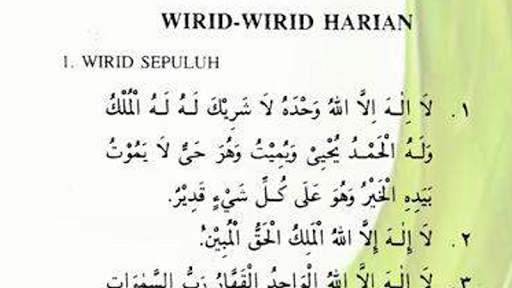 WIRID-WIRID HARIAN
1. WIRID SEPULUH
١. لَا اِلٰـهَ اِلَّا اللهُ وَحْدَهُ لَا شَرِيْكَ لَـهُ لَـهُ الْمُلْكُ
وَلَـهُ الْحَمْـدُ يُحْيِيْ وَيُمِيْتُ وَهُوَ حَيٌّ لَا يَمُوْتُ
بِيَدِهِ الْخَيْرُ وَهُوَ عَلَى كُـلِّ شَيْءٍ قَدِيْرٌ.
٢. لَا إِلٰـهَ إِلَّا اللهُ الْمَلِكُ الْحَقُّ الْمُبِيْنُ.
٣. لَا اِلٰـهَ اِلَّا اللهُ الْوَاحِدُ الْقَهَّارُ رَبُّ السَّمٰوَاتِ